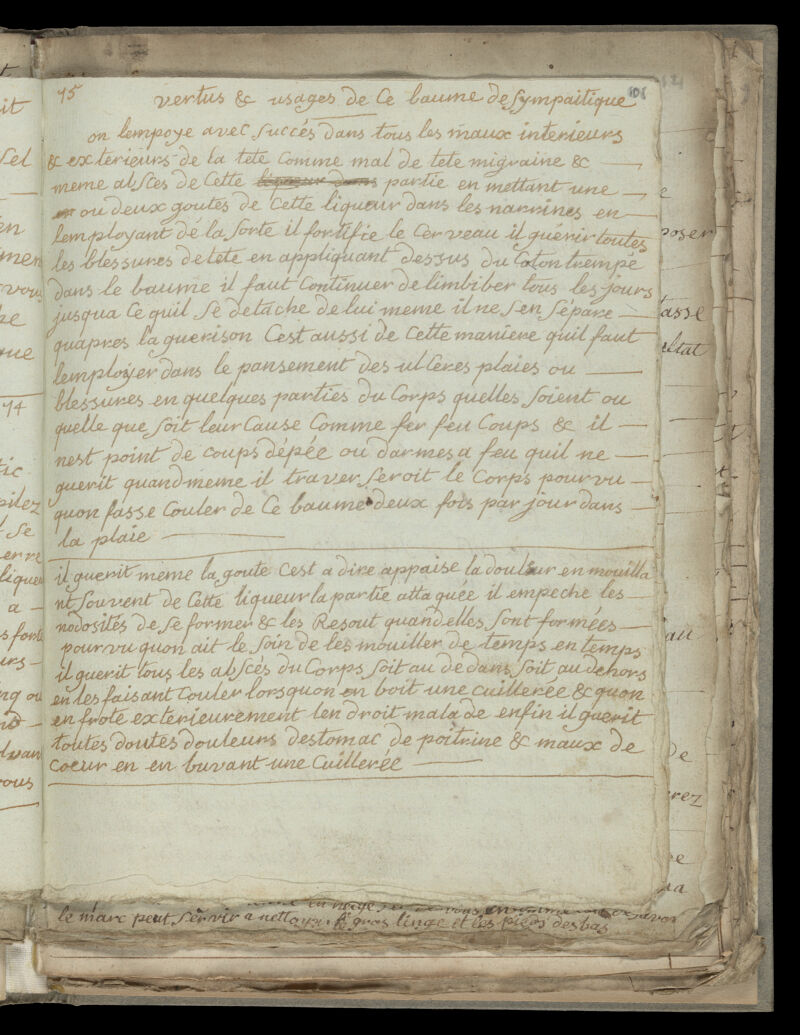 15
vertus & usages de Ce baume de sympaitique
101
on lempoye avec succés dans tous les maux interieurs
& exterieurs de la tete comme mal de tete migraine &
meme absces de Cette liqueur dans partie en mettant une
ou deux goutes de Cette liqueur dans les narrines en
lemployant dé la sorte il fortifie le Cerveau il guérir toutes
les blessures de tete en appliquant dessus du Coton trempé
dans le baume il faut Continuer de limbiber tous les jours
jusqua Ce quil se detache de lui meme il ne sen sépare
quapres la guerison Cest aussi de Cette maniere quil faut
lemployer dans le pansement des ulceres plaies ou
blessures en quelques parties du Corps quelles soient ou
quelle que soit leur Cause Comme fer feu Coups & il
nest point de coups dépée ou darmes a feu quil ne
guerit quand meme il traverseroit le Corps pourvu
quon fasse Couler de Ce baume deux fois par jour dans
la plaie
il guerit meme la goute Cest a dire appaise la douleur en mouilla
nt souvent de Cette liqueur la partie attaquée il empeche les
nodosités de se former & les Resout quand elles sont formées
pourvu quon ait le soin de les mouiller de temps en temps
il guerit tous les abscés du Corps soit au dedans soit au dehors
en les faisant Couler lorsquon en boit une Cuillerée & quon
en frote exterieurement lendroit malade enfin il guerit
toutes doutes douleurs destomac de poitrine & maux de
Coeur en en buvant une Cuillerée
le marc peut servir a nettoyer le gros linge et les pieds des bas
it
sel
en
men
vous
que
14
pilez
se
erre
a
ng ou
vous
poser
tasse
ltat
eau
de
rez